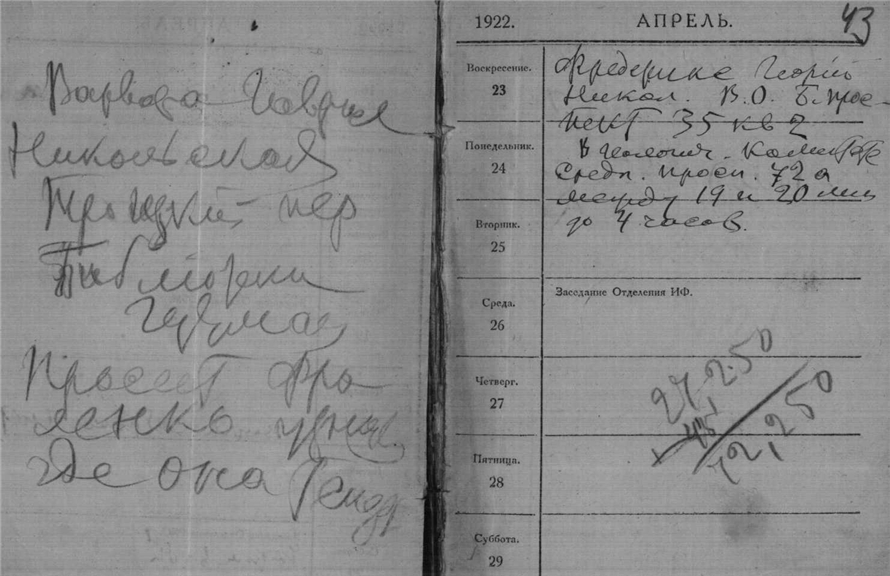 Варвара Гаврил
Никольская
Троицкий пер
Просит Фро-
ленко узнат
где она
1922. АПРЕЛЬ. 43
Воскресение.
23
Фредерикс Георгий
Никол. В.О. Б. прос-
пект 35 кв 2
Понедельник.
24
В Геологич. Комитете
Средн. просп. 72а
между 19 и 20 лин
до 4 часов.
Вторник.
25
Среда.
26
Заседание Отделения ИФ.
Четверг.
27
27.250
45
72,250
Пятница.
28
Суббота.
29